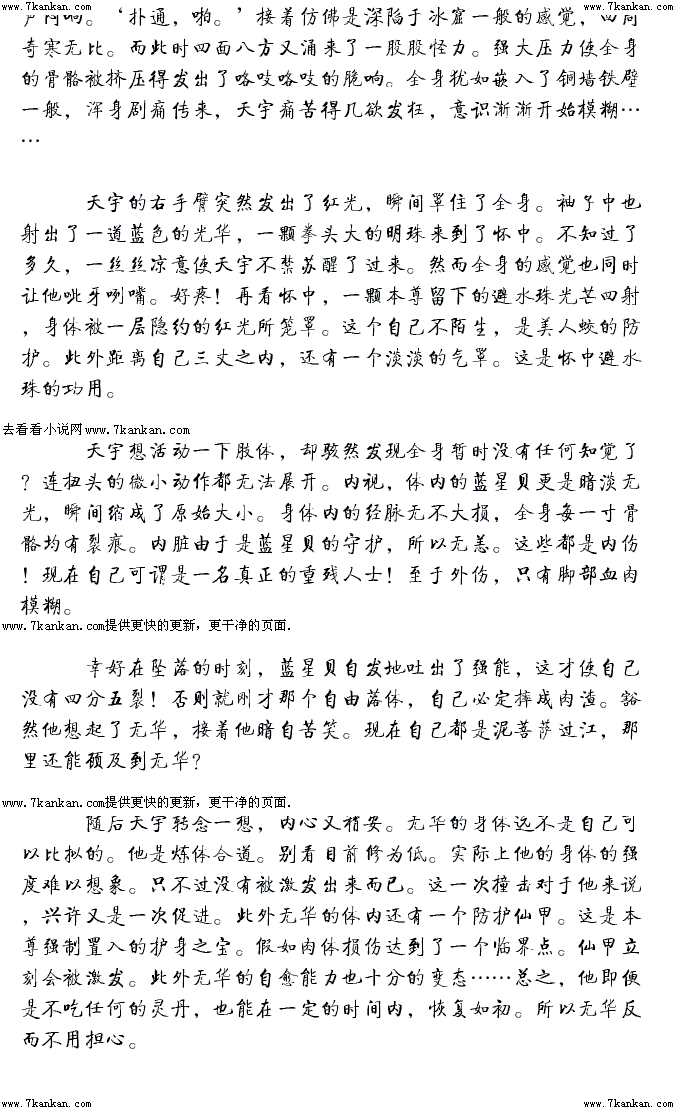 www.7kankan.com www.7kankan.com www.7kankan.com
‘扑通，啪。’接着仿佛是深陷于冰窟一般的感觉，四周
奇寒无比。而此时四面八方又涌来了一股股怪力。强大压力使全身
的骨骼被挤压得发出了咯吱咯吱的脆响。全身犹如嵌入了铜墙铁壁
一般，浑身剧痛传来，天宇痛苦得几欲发狂，意识渐渐开始模糊…
…
天宇的右手臂突然发出了红光，瞬间罩住了全身。袖子中也
射出了一道蓝色的光华，一颗拳头大的明珠来到了怀中。不知过了
多久，一丝丝凉意使天宇不禁苏醒了过来。然而全身的感觉也同时
让他呲牙咧嘴。好疼！再看怀中，一颗本尊留下的避水珠光芒四射
，身体被一层隐约的红光所笼罩。这个自己不陌生，是美人蛟的防
护。此外距离自己三丈之内，还有一个淡淡的气罩。这是怀中避水
珠的功用。
去看看小说网www.7kankan.com
天宇想活动一下肢体，却骇然发现全身暂时没有任何知觉了
？连扭头的微小动作都无法展开。内视，体内的蓝星贝更是暗淡无
光，瞬间缩成了原始大小。身体内的经脉无不大损，全身每一寸骨
骼均有裂痕。内脏由于是蓝星贝的守护，所以无恙。这些都是内伤
！现在自己可谓是一名真正的重残人士！至于外伤，只有脚部血肉
模糊。
www.7kankan.com提供更快的更新，更干净的页面.
幸好在坠落的时刻，蓝星贝自发地吐出了强能，这才使自己
没有四分五裂！否则就刚才那个自由落体，自己必定摔成肉渣。豁
然他想起了无华，接着他暗自苦笑。现在自己都是泥菩萨过江，那
里还能顾及到无华？
www.7kankan.com提供更快的更新，更干净的页面.
随后天宇转念一想，内心又稍安。无华的身体远不是自己可
以比拟的。他是炼体合道。别看目前修为低。实际上他的身体的强
度难以想象。只不过没有被激发出来而已。这一次撞击对于他来说
，兴许又是一次促进。此外无华的体内还有一个防护仙甲。这是本
尊强制置入的护身之宝。假如肉体损伤达到了一个临界点。仙甲立
刻会被激发。此外无华的自愈能力也十分的变态……总之，他即便
是不吃任何的灵丹，也能在一定的时间内，恢复如初。所以无华反
而不用担心。
www.7kankan.com www.7kankan.com www.7kankan.com